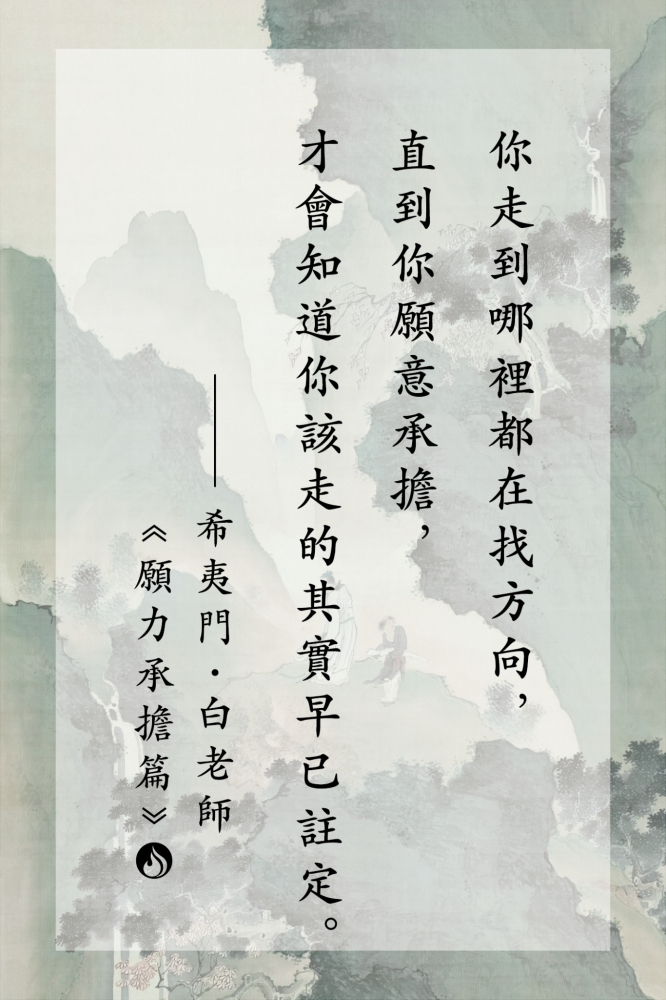 你走到哪裡都在找方向，
直到你願意承擔，
才會知道你該走的其實早已註定。
——希夷門·白老師
《願力承擔篇》